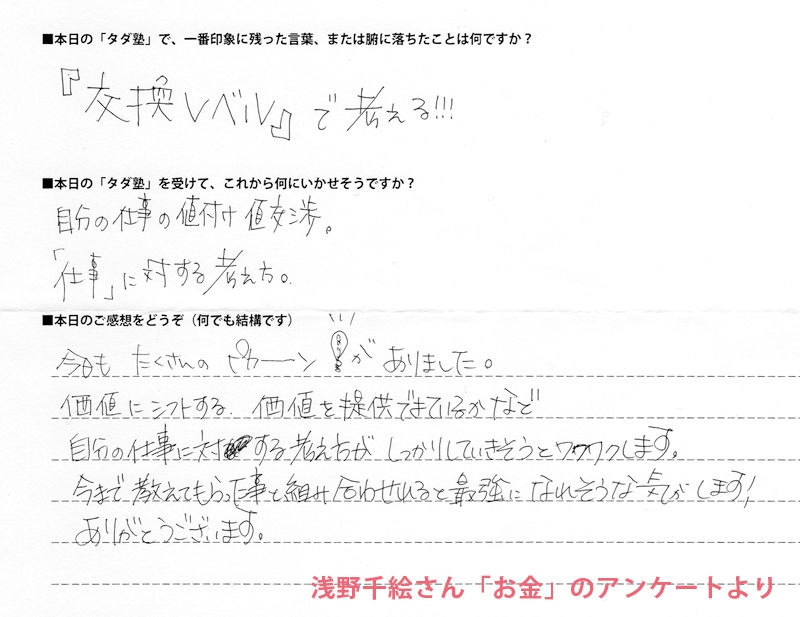 ■本日の「タダ塾」で、一番印象に残った言葉、または腑に落ちたことは何ですか？
『交換レベル』で考える!!!
■本日の「タダ塾」を受けて、これから何にいかせそうですか？
自分の仕事の値付け 値交渉。
「仕事」に対する考え方。
■本日のご感想をどうぞ（何でも結構です）
今日も たくさんの ピカーーン が ありました。
価値にシフトする、価値を提供できているかなど
自分の仕事に対する考え方が しっかりしていきそうとワクワクします。
今まで教えてもらった事と組み合わせれると最強になれそうな気がします!
ありがとうございます。
浅野千絵さん「お金」のアンケートより